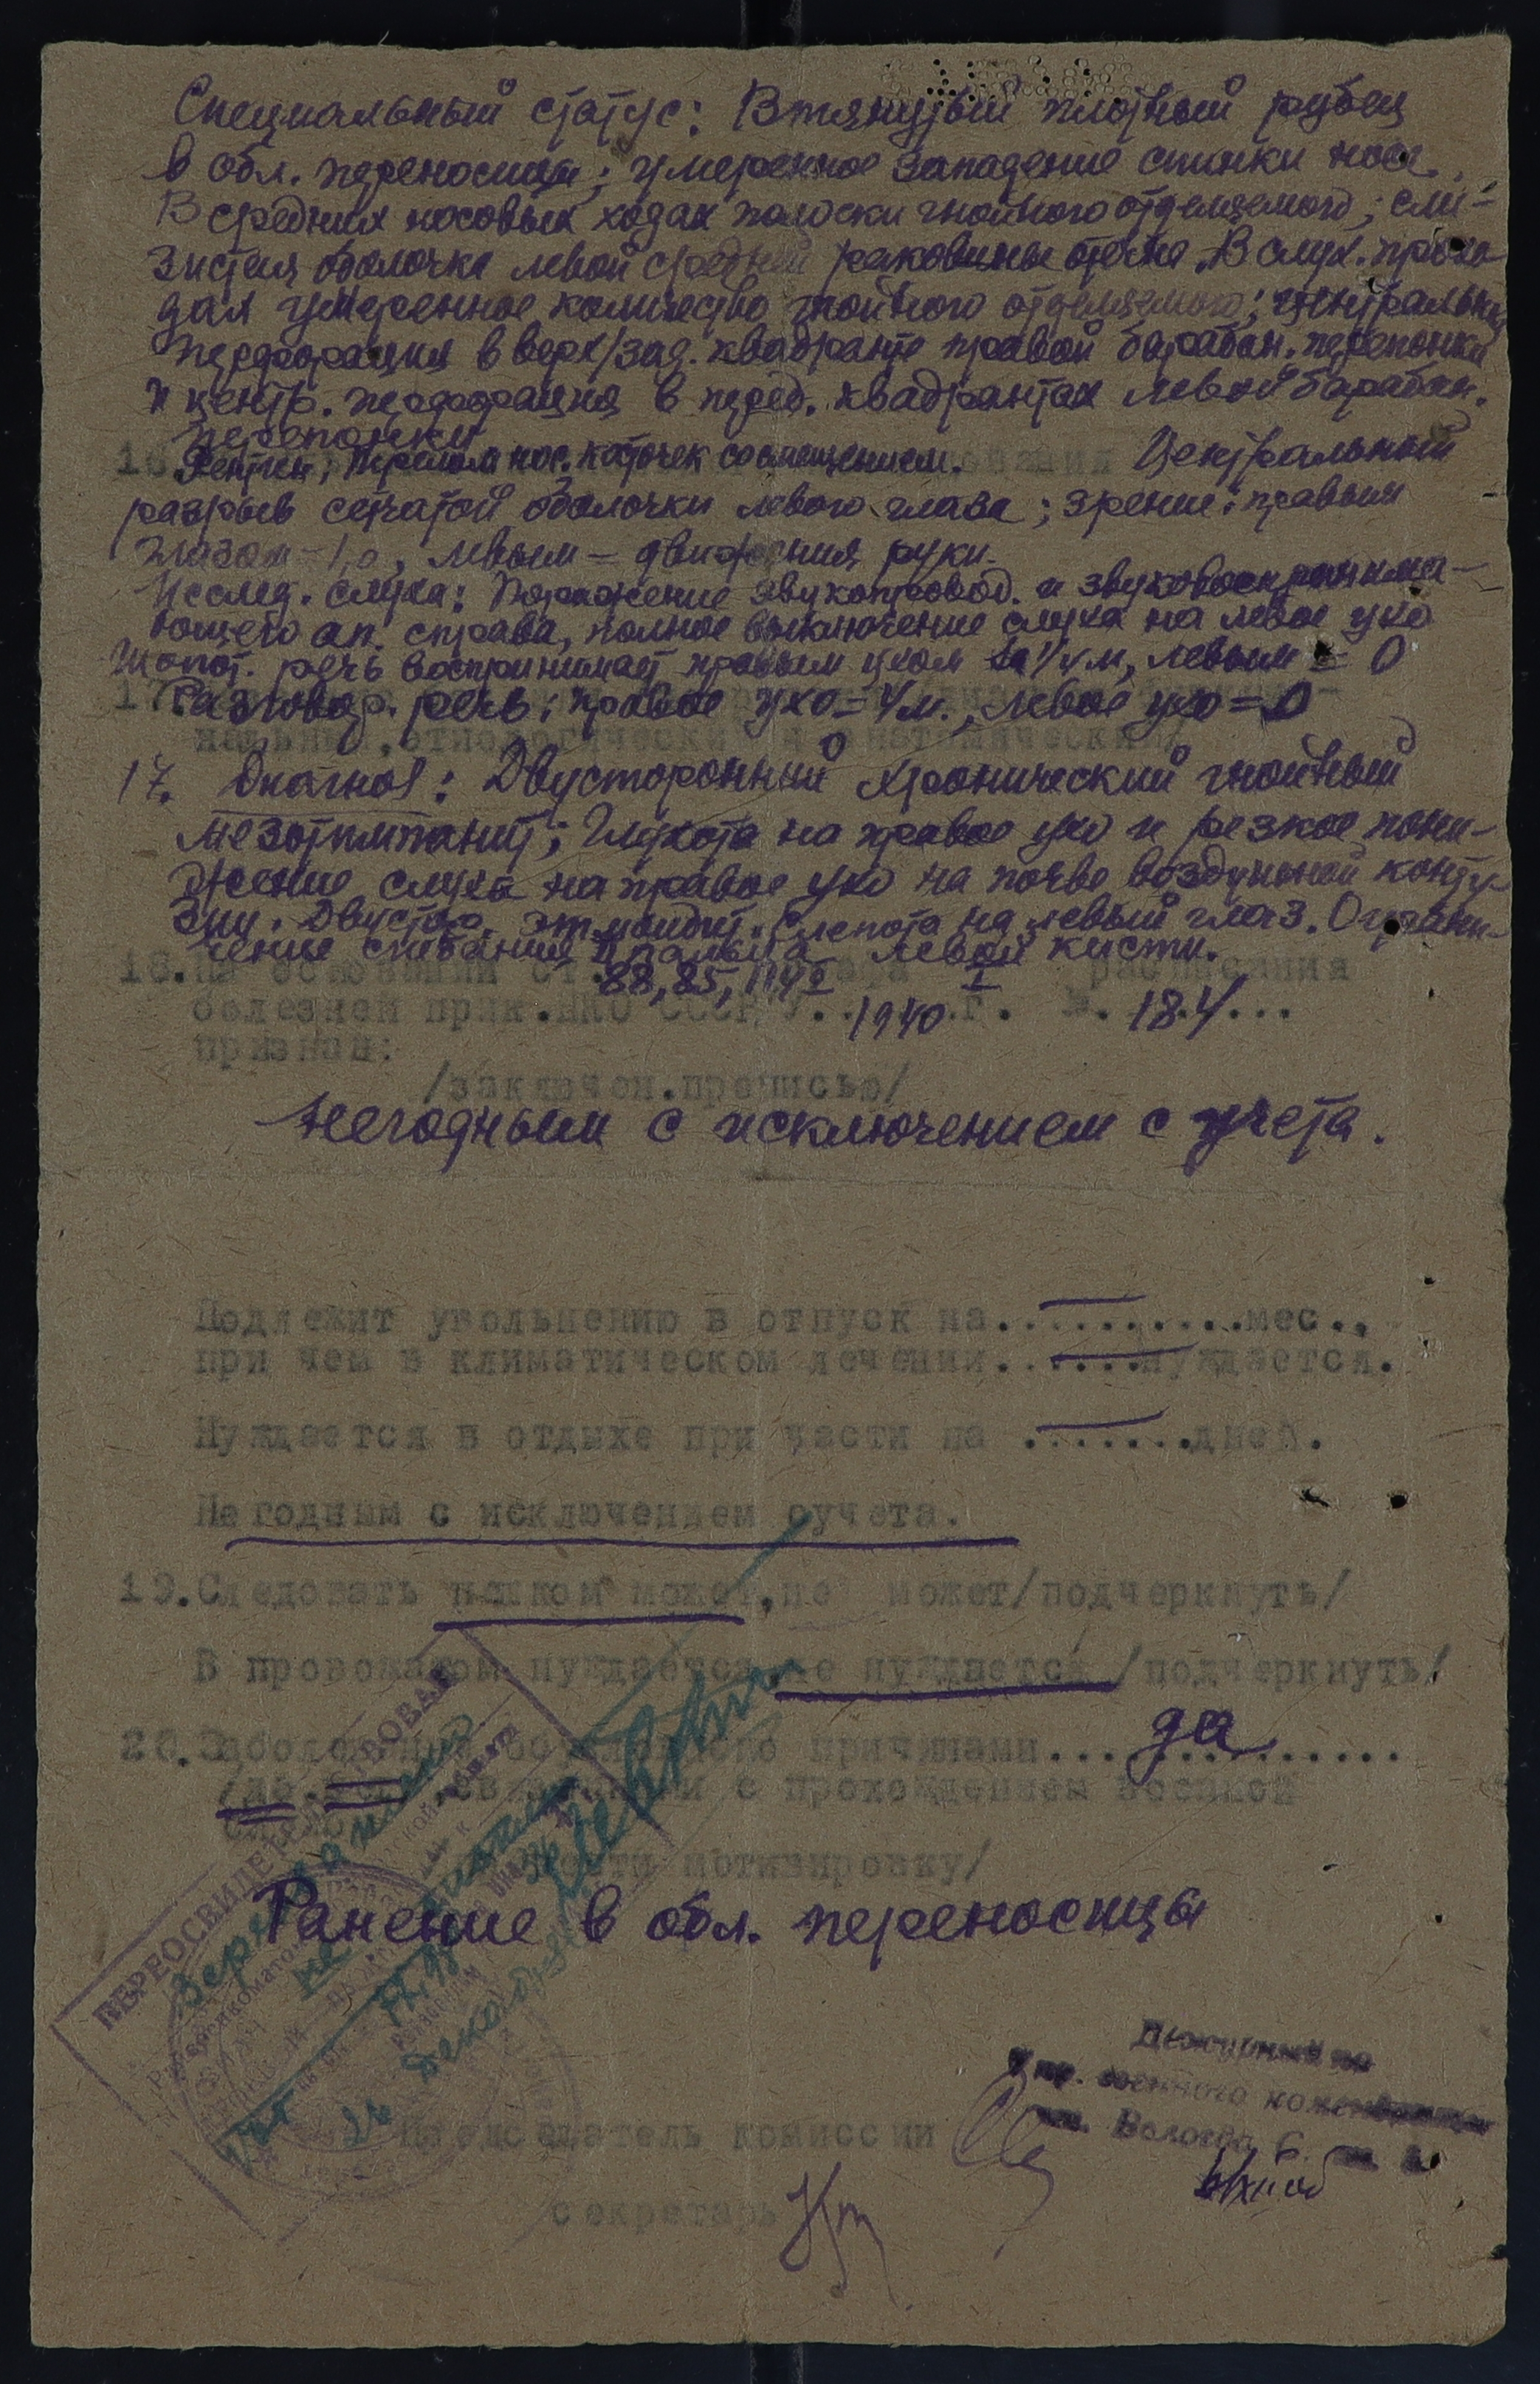 Специальный статус: Втянутый плотный рубец
в обл. переносицы; умеренное западение спинки носа.
В средних носовых ходах полоски гнойного отделяемого; сли-
зистая оболочка левой средней раковины отечна. В слух. прохо-
дах умеренное количество гнойного отделяемого; центральная
перфорация в верх/зад. квадранте правой барабан. перепонки
и центр. перфорация в перед. квадрантах левой барабан.
перепонки
16. Рентген; перелом нос. косточек со смещением. Центральный
разрыв сетчатой оболочки левого глаза; зрение: правым
глазом – 1,0, левым – движения руки.
Исслед. слуха: Поражение звукопровод. и звуковосприима-
ющего ап. справа, полное выключение слуха на левое ухо
Шопот. речь воспринимает правым ухом 1/4 м, левым = 0
17. Разговор. речь: правое ухо = 4 м., левое ухо = 0
нальный, этиологически и анатомический/
17. Диагноз: Двусторонний хронический гнойный
мезотимпанит; Глухота на правое ухо и резкое пони-
жение слуха на правое ухо на почве воздушной конту-
зии. Двустор. этмоидит. Слепота на левый глаз. Ограни-
чение сгибания пальца левой кисти.
18. На основании ст. 88, 85, I расписания
болезней прик. НКО СССР 1940 г. №. 184...
признан:
/заключен. прописью/
негодным с исключением с учета.
Подлежит увольнению в отпуск на..........мес.,
при чем в климатическом лечении......нуждается.
Нуждается в отдыхе при части на .......дней.
Не годным с исключением с учета.
19. Следовать пешком может, не может/подчеркнуть/
В провожатом нуждается, не нуждается /подчеркнуть/
20. Заболевание причинами... да ..........
связанными с прохождением военной
службы
мотивировку/
Ранение в обл. переносицы
ПЕРЕОСВИДЕТЕЛЬСТВОВАН
Дежурный по
упр. военного коменданта
ст. Вологда
Председатель комиссии
секретарь